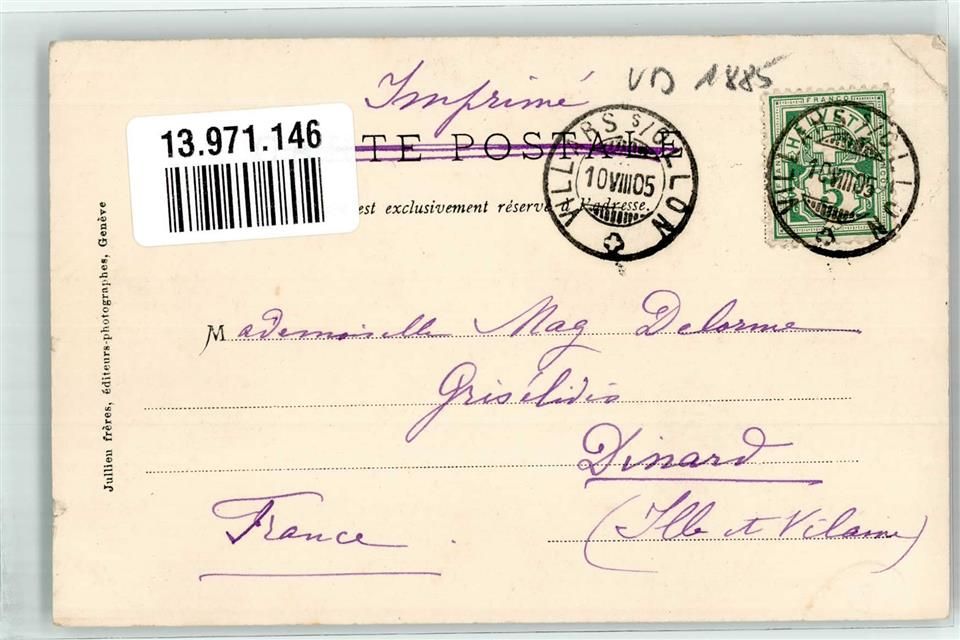 VD 1885
Imprimé
13.971.146
TE POSTALE
est exclusivement réservé à l'adresse.
VILLARS S/OLLON
10 VIII 05
FRANCO
HELVETIA
5
VILLARS S/OLLON
10 VIII 05
Jullien frères, éditeurs-photographes, Genève
Mademoiselle Mag Delorme
Grisélidis
Dinard
France
(Ille et Vilaine)